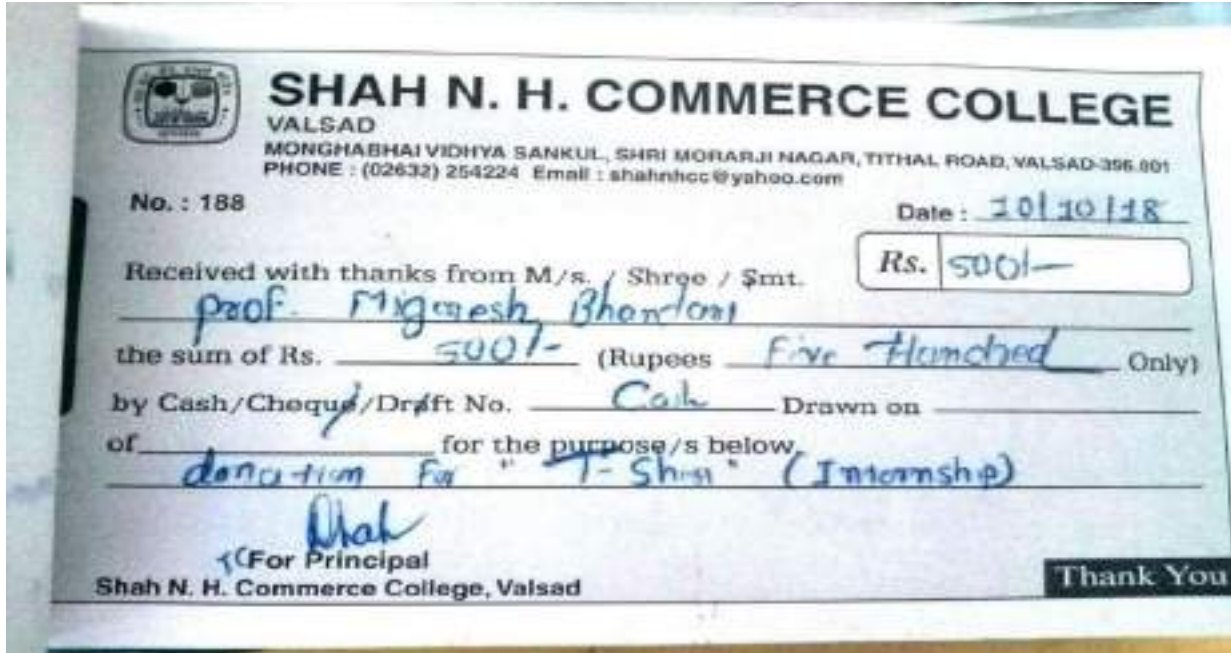 SHAH N. H. COMMERCE COLLEGE
VALSAD
MONGHABHAI VIDHYA SANKUL, SHRI MORARJI NAGAR, TITHAL ROAD, VALSAD-396 001
PHONE : (02632) 254224 Email : shahnhcc@yahoo.com
No. : 188
Date : 10/10/18
Received with thanks from M/s. / Shree / Smt.
Rs. 500/-
Prof.
the sum of Rs. 500/- (Rupees Five Hundred Only)
by Cash/Cheque/Draft No. Cash Drawn on
of for the purpose/s below
donation For "T-Shirt" (Internship)
Shah
For Principal
Shah N. H. Commerce College, Valsad
Thank You